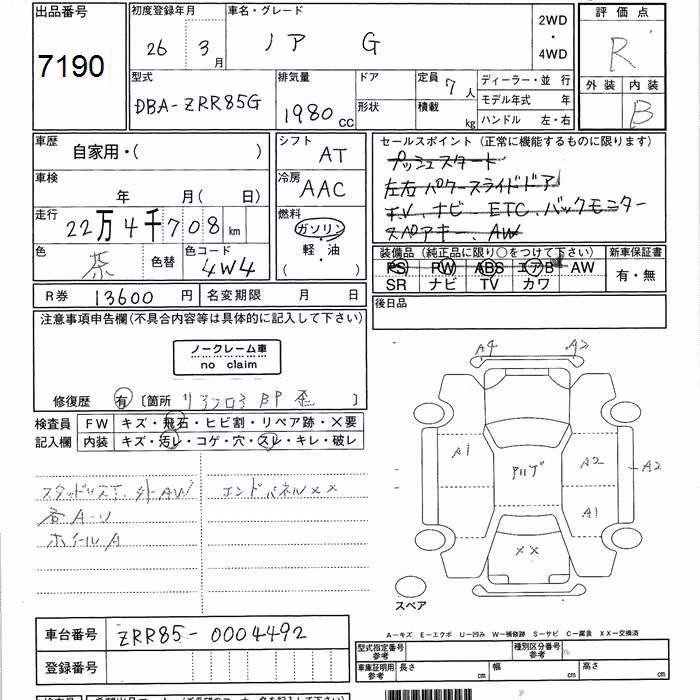 出品番号 初度登録年月 車名・グレード 2WD・4WD 評価点
7190 26 3月 ノア G R
型式 排気量 ドア 定員 7人 ディーラー・並 行 外装 内装
DBA-ZRR85G 1980cc 形状 積載 kg モデル年式 年 B
ハンドル 左・右
車歴 シフト セールスポイント (正常に機能するものに限ります)
自家用・( ) AT プッシュスタート
車検 冷房 左右パワースライドドア
年 月(日) AAC TV、ナビ ETC、バックモニター
走行 燃料 スペアキー、AW
22万4千708km ガソリン
軽・油
( ・ )
色 色替 色コード 装備品 (純正品に限り○をつけて下さい) 新車保証書
茶 4W4 PS PW ABS エアB AW 有・無
R券 13600円 名変期限 月 日 SR ナビ TV カワ
後日品
注意事項申告欄(不具合内容等は具体的に記入して下さい)
ノークレーム車
no claim
修復歴 有 [箇所 リアフロア BP 歪 ]
検査員 FW キズ・飛石・ヒビ割・リペア跡・×要
記入欄 内装 キズ・汚レ・コゲ・穴・スレ・キレ・破レ
A4 A2
A1 A2 A2
A1
××
スタッドレス 外AW エンドパネル××
各A-U
ホイールA
スペア
車台番号 ZRR85-0004492
登録番号
A-キズ E-エクボ U-凹み W-補修跡 S-サビ C-腐食 XX-交換済
型式指定番号 参考 種別区分番号 参考
車庫証明用 参考 長さ cm 幅 cm 高さ cm